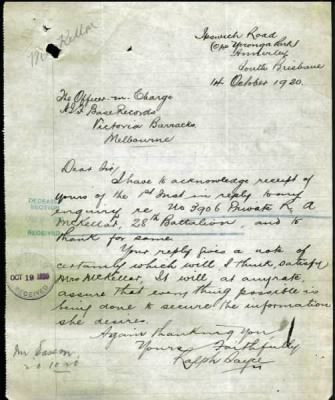 McKellar
Ipswich Road
Opp Yeronga Park
Annerley
South Brisbane
14 October 1920.
The Officer-in-Charge
A.I.F. Base Records
Victoria Barracks
Melbourne
Dear Sir,
I have to acknowledge receipt
of yours of the 1st Inst in reply to my
enquiry re No 3906 Private R. A
McKellar, 28th Battalion and to
thank for same
Your reply gives a note of
certainty which will, I think, satisfy
Mrs McKellar. It will at anyrate,
assure that everything possible is
being done to secure the information
she desires.
Again thanking you
Yours Faithfully
Ralph
DECEASED
SECTION
RECEIVED
OCT 19 1920
RECEIVED
Mr
20.10.20